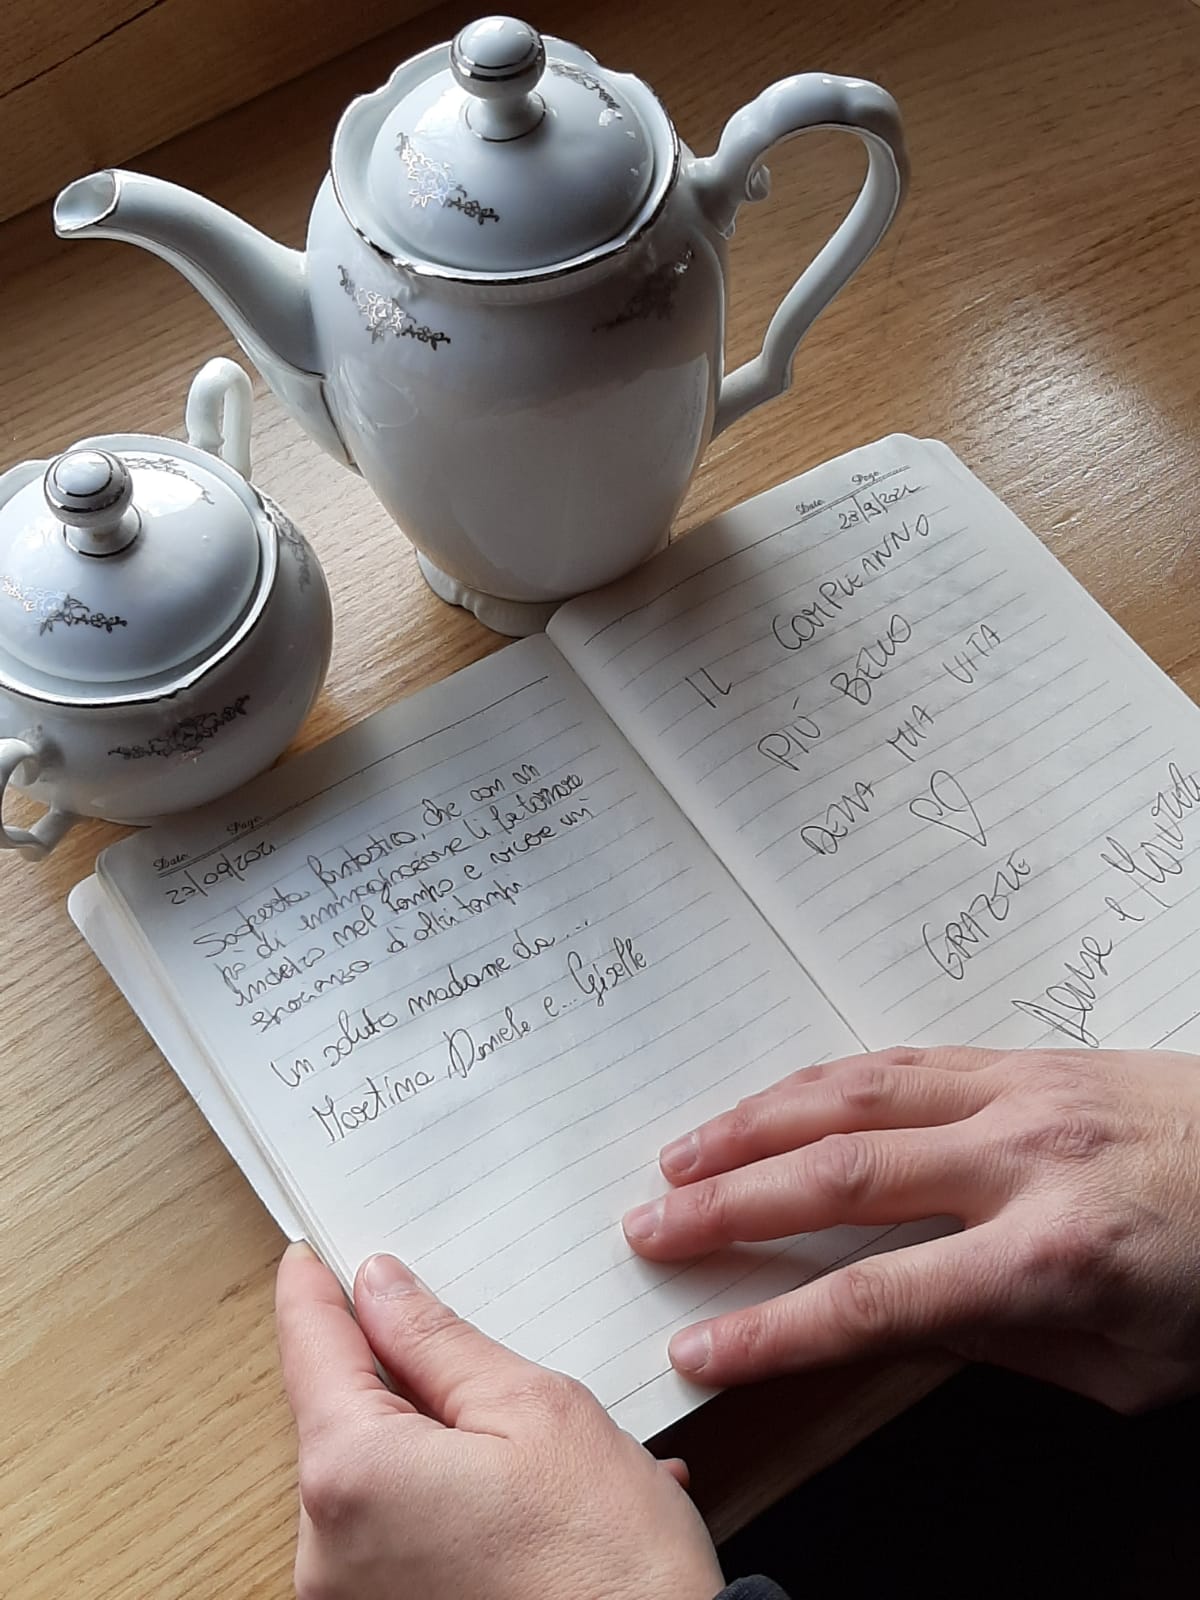 Date Page
27/09/2021
Scoperta fantastica, che con un
pò di immaginazione ti fa tornare
indietro nel tempo e vivere un'
d'altri tempi
Un saluto madame da ...
Martina, Daniele e... Giselle
Date Page
28/9/2021
IL COMPLEANNO
PIÙ BELLO
DELLA MIA VITA
GRAZIE
e